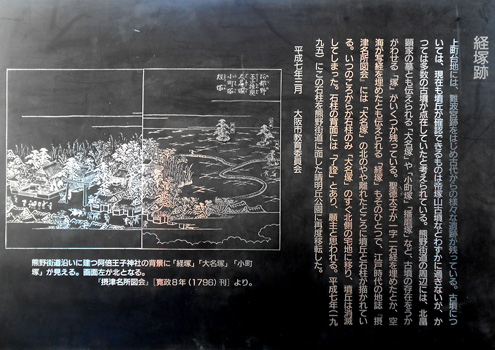 経塚跡
上町台地には、難波宮跡をはじめ古代からの様々な遺跡が残っている。古墳につ
いては、現在も墳丘が確認できるものは帝塚山古墳などわずかに過ぎないが、か
つては多数の古墳が点在していたと考えられている。熊野街道の周辺には、北畠
顕家の墓とも伝えられる「大名塚」や「小町塚」「播磨塚」など、古墳の存在をうか
がわせる「塚」がいくつか残っている。聖徳太子が一字一石経を埋めたとか、空
海が写経を埋めたとも伝えられる「経塚」もそのひとつで、江戸時代の地誌『摂
津名所図会』には「大名塚」の北のやや離れたところに墳丘と石柱が描かれてい
る。いつのころからか石柱のみ「大名塚」のすぐ北側の宅地に移り、墳丘は消滅
してしまった。石柱の背面には「了詮」とあり、願主と思われる。平成七年(一九
九五)にこの石柱を熊野街道に面した万代公園に再度移転した。
平成七年三月　大阪市教育委員会
阿部野
大名塚
小町塚
経塚
熊野街道沿いに建つ阿倍王子神社の背景に「経塚」「大名塚」「小町
塚」が見える。画面左が北となる。
『摂津名所図会』[寛政8年(1796)刊]より。